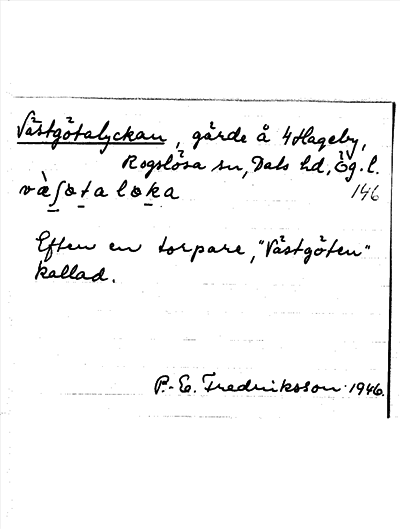 Västgötalyckan, gärde å 4 Hageby,
Rogslösa sn, Dals hd, Ög. l.
væ̀ʃɵtalɵka 146
Efter en torpare, "Västgöten"
kallad.
P.-E. Fredriksson 1946.